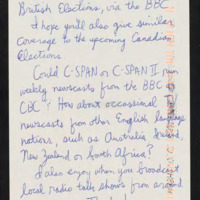 British Elections, via the BBC.
I hope you'll also give similar
coverage to the upcoming Canadian
Elections.
Could C-SPAN or C-SPAN II run
weekly newscasts from the BBC or
CBC? How about occassional TV
newscasts from other English language
nations, such as Australia, Ireland,
New Zealand or South Africa?
I also enjoy when you broadcast
local radio talk shows from around